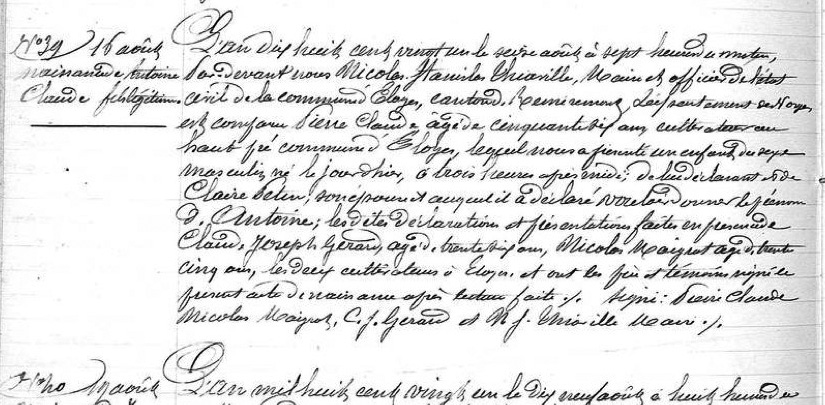 N° 39 16 août
naissance de Antoine
Claude fils légitime
L'an dix huit cent vingt un le seize août à sept heures du matin,
par devant nous Nicolas Stanislas Thiaville, Maire et officier de l'état
civil de la commune d'Eloyes, canton de Remiremont, Département des Vosges
est comparu Pierre Claude agé de cinquante six ans cultivateur au
haut pré commune d'Eloyes, lequel nous a présenté un enfant du sexe
masculin né le jour d'hier, à trois heures après midi, de lui déclarant et de
Claire son épouse et auquel il a déclaré vouloir donner le prénom
d'Antoine; les dites déclarations et présentations faites en présence de
Claude Joseph Gerard, agé de trente six ans, Nicolas Maigrot agé de trente
cinq ans, les deux cultivateurs à Eloyes, et ont les père et témoins signé le
présent acte de naissance après lecture faite ./. signé: Pierre Claude
Nicolas Maigrot, C. J. Gerard et N. J. Thiaville Maire ./.
N° 40 19 août
L'an mil huit cent vingt un le dix neuf août à huit heures du